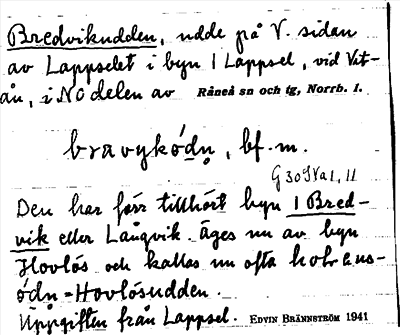 Bredvikudden, udde på V. sidan
av Lappselet i byn 1 Lappsel, vid Vit-
ån, i NO delen av Råneå sn och tg, Norrb. l.
bravykódn, bf. m.
G 30 SVa 1, 11
Den har förr tillhört byn 1 Bred-
vik eller Långvik. Äges nu av byn
Hovlös och kallas nu ofta
ódn = Hovlösudden.
Uppgiften från Lappsel. EDVIN BRÄNNSTRÖM 1941